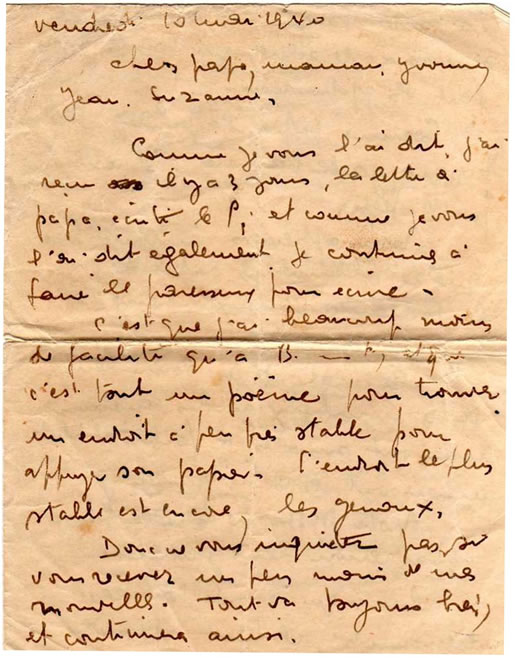 vendredi 10 mai 1940
chers papa, maman, Yvonne,
Jean. Suzanne,
Comme je vous l'ai dit, j'ai
reçu il y a 3 jours, la lettre à
papa, écrite le et comme je vous
l'ai dit également je continue à
faire le paresseux pour écrire -
C'est que j'ai beaucoup moins
de facilité qu'à B. et que
c'est tout un poème pour trouver
un endroit à peu près stable pour
appuyer son papier. L'endroit le plus
stable est encore, les genoux.
Donc ne vous inquiétez pas, si
vous recevez un peu moins de mes
nouvelles. Tout va toujours bien,
et continuera ainsi.